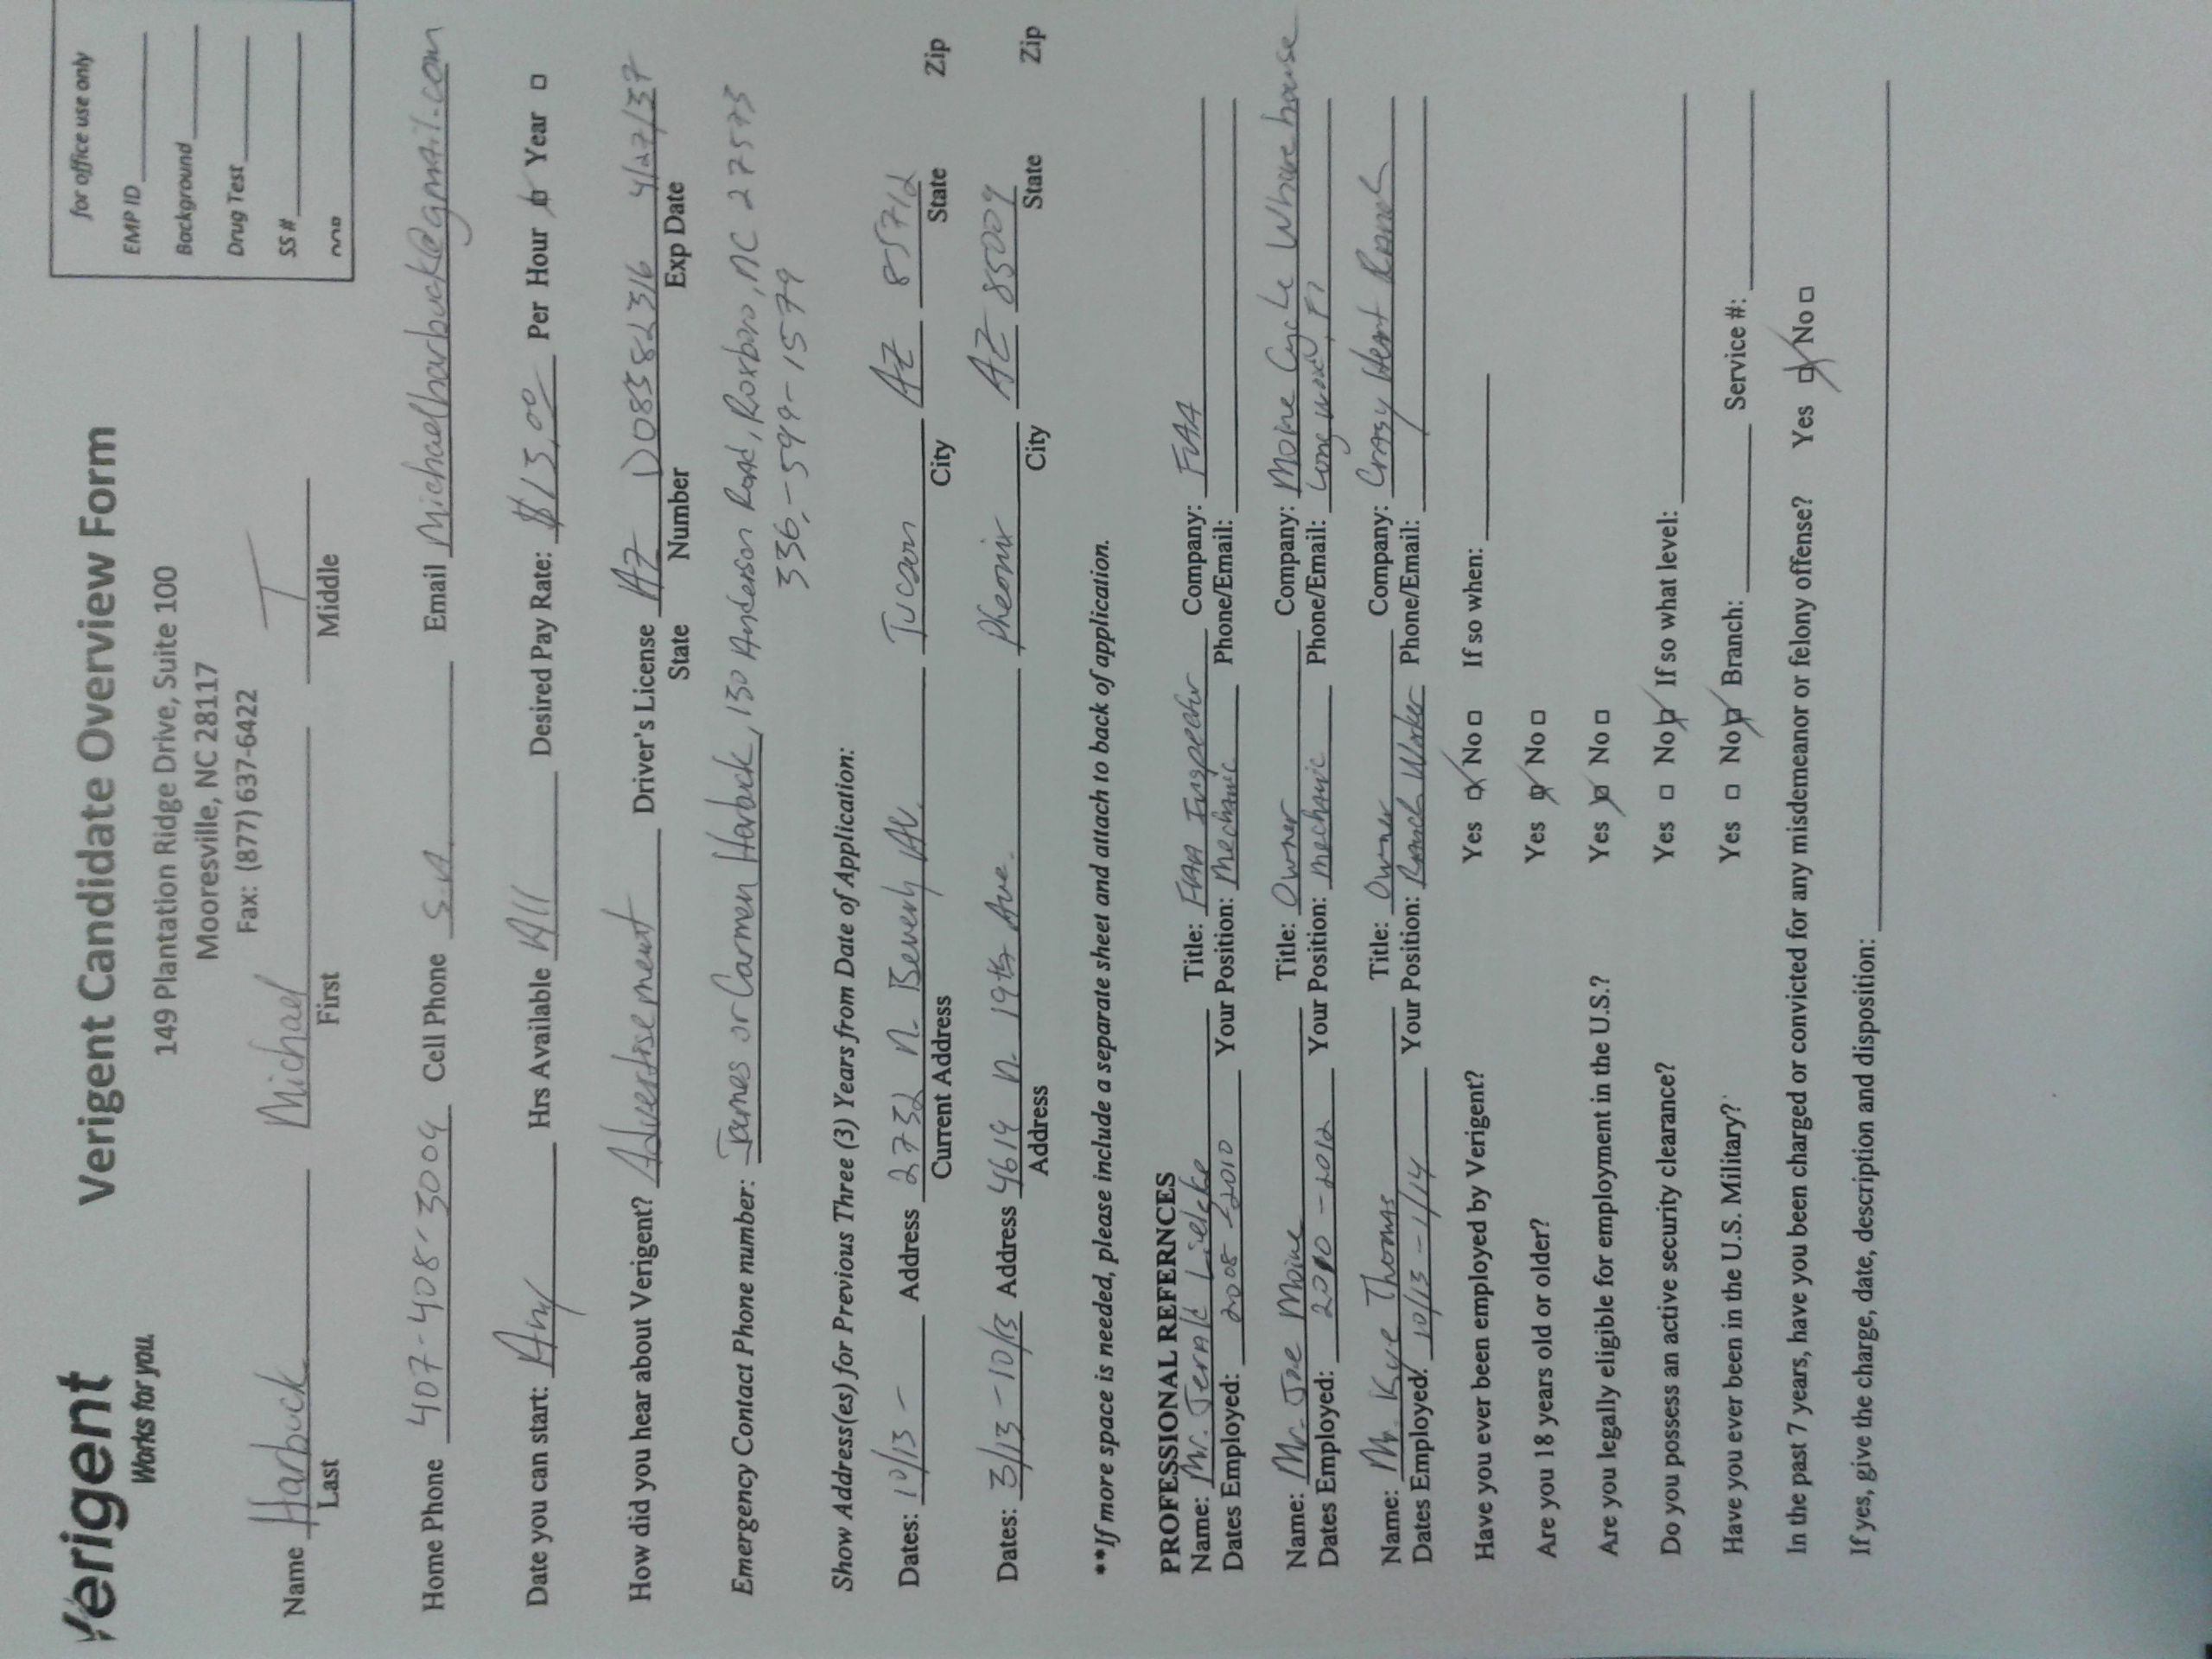 Verigent
Works for you.
Verigent Candidate Overview Form
149 Plantation Ridge Drive, Suite 100
Mooresville, NC 28117
Fax: (877) 637-6422
for office use only
EMP ID
Background
Drug Test
SS #
Name Harbuck Michael T
Last First Middle
Home Phone 407-408-3009 Cell Phone S.A. Email Michaelharbuck@gmail.com
Date you can start: Any Hrs Available All Desired Pay Rate: $13.00 Per Hour □ Year □
How did you hear about Verigent? Advertisement Driver's License AZ D083582316 4/27/37
State Number Exp Date
Emergency Contact Phone number: James or Carmen Harbuck, 130 Anderson Road, Roxboro, NC 27573
336-599-1579
Show Address(es) for Previous Three (3) Years from Date of Application:
Dates: 10/13 - Address 2732 N. Beverly AV. Tucson AZ 85712
Current Address City State Zip
Dates: 3/13-10/13 Address 4619 N. 19th Ave. Pheonix AZ 85009
Address City State Zip
**If more space is needed, please include a separate sheet and attach to back of application.
PROFESSIONAL REFERNCES
Name: Mr. Jerald Title: FAA Inspector Company: FAA
Dates Employed: 2008-2010 Your Position: Mechanic Phone/Email:
Name: Mr. Joe Moine Title: Owner Company: Moine Cycle Wharehouse
Dates Employed: 2010-2012 Your Position: Mechanic Phone/Email: Longwood, Fl
Name: Mr. Kye Thomas Title: Owner Company: Crasy Heart Ranch
Dates Employed: 10/13-1/14 Your Position: Ranch Worker Phone/Email:
Have you ever been employed by Verigent? Yes □ No □ If so when:
Are you 18 years old or older? Yes □ No □
Are you legally eligible for employment in the U.S.? Yes □ No □
Do you possess an active security clearance? Yes □ No □ If so what level:
Have you ever been in the U.S. Military? Yes □ No □ Branch: Service #:
In the past 7 years, have you been charged or convicted for any misdemeanor or felony offense? Yes □ No □
If yes, give the charge, date, description and disposition: